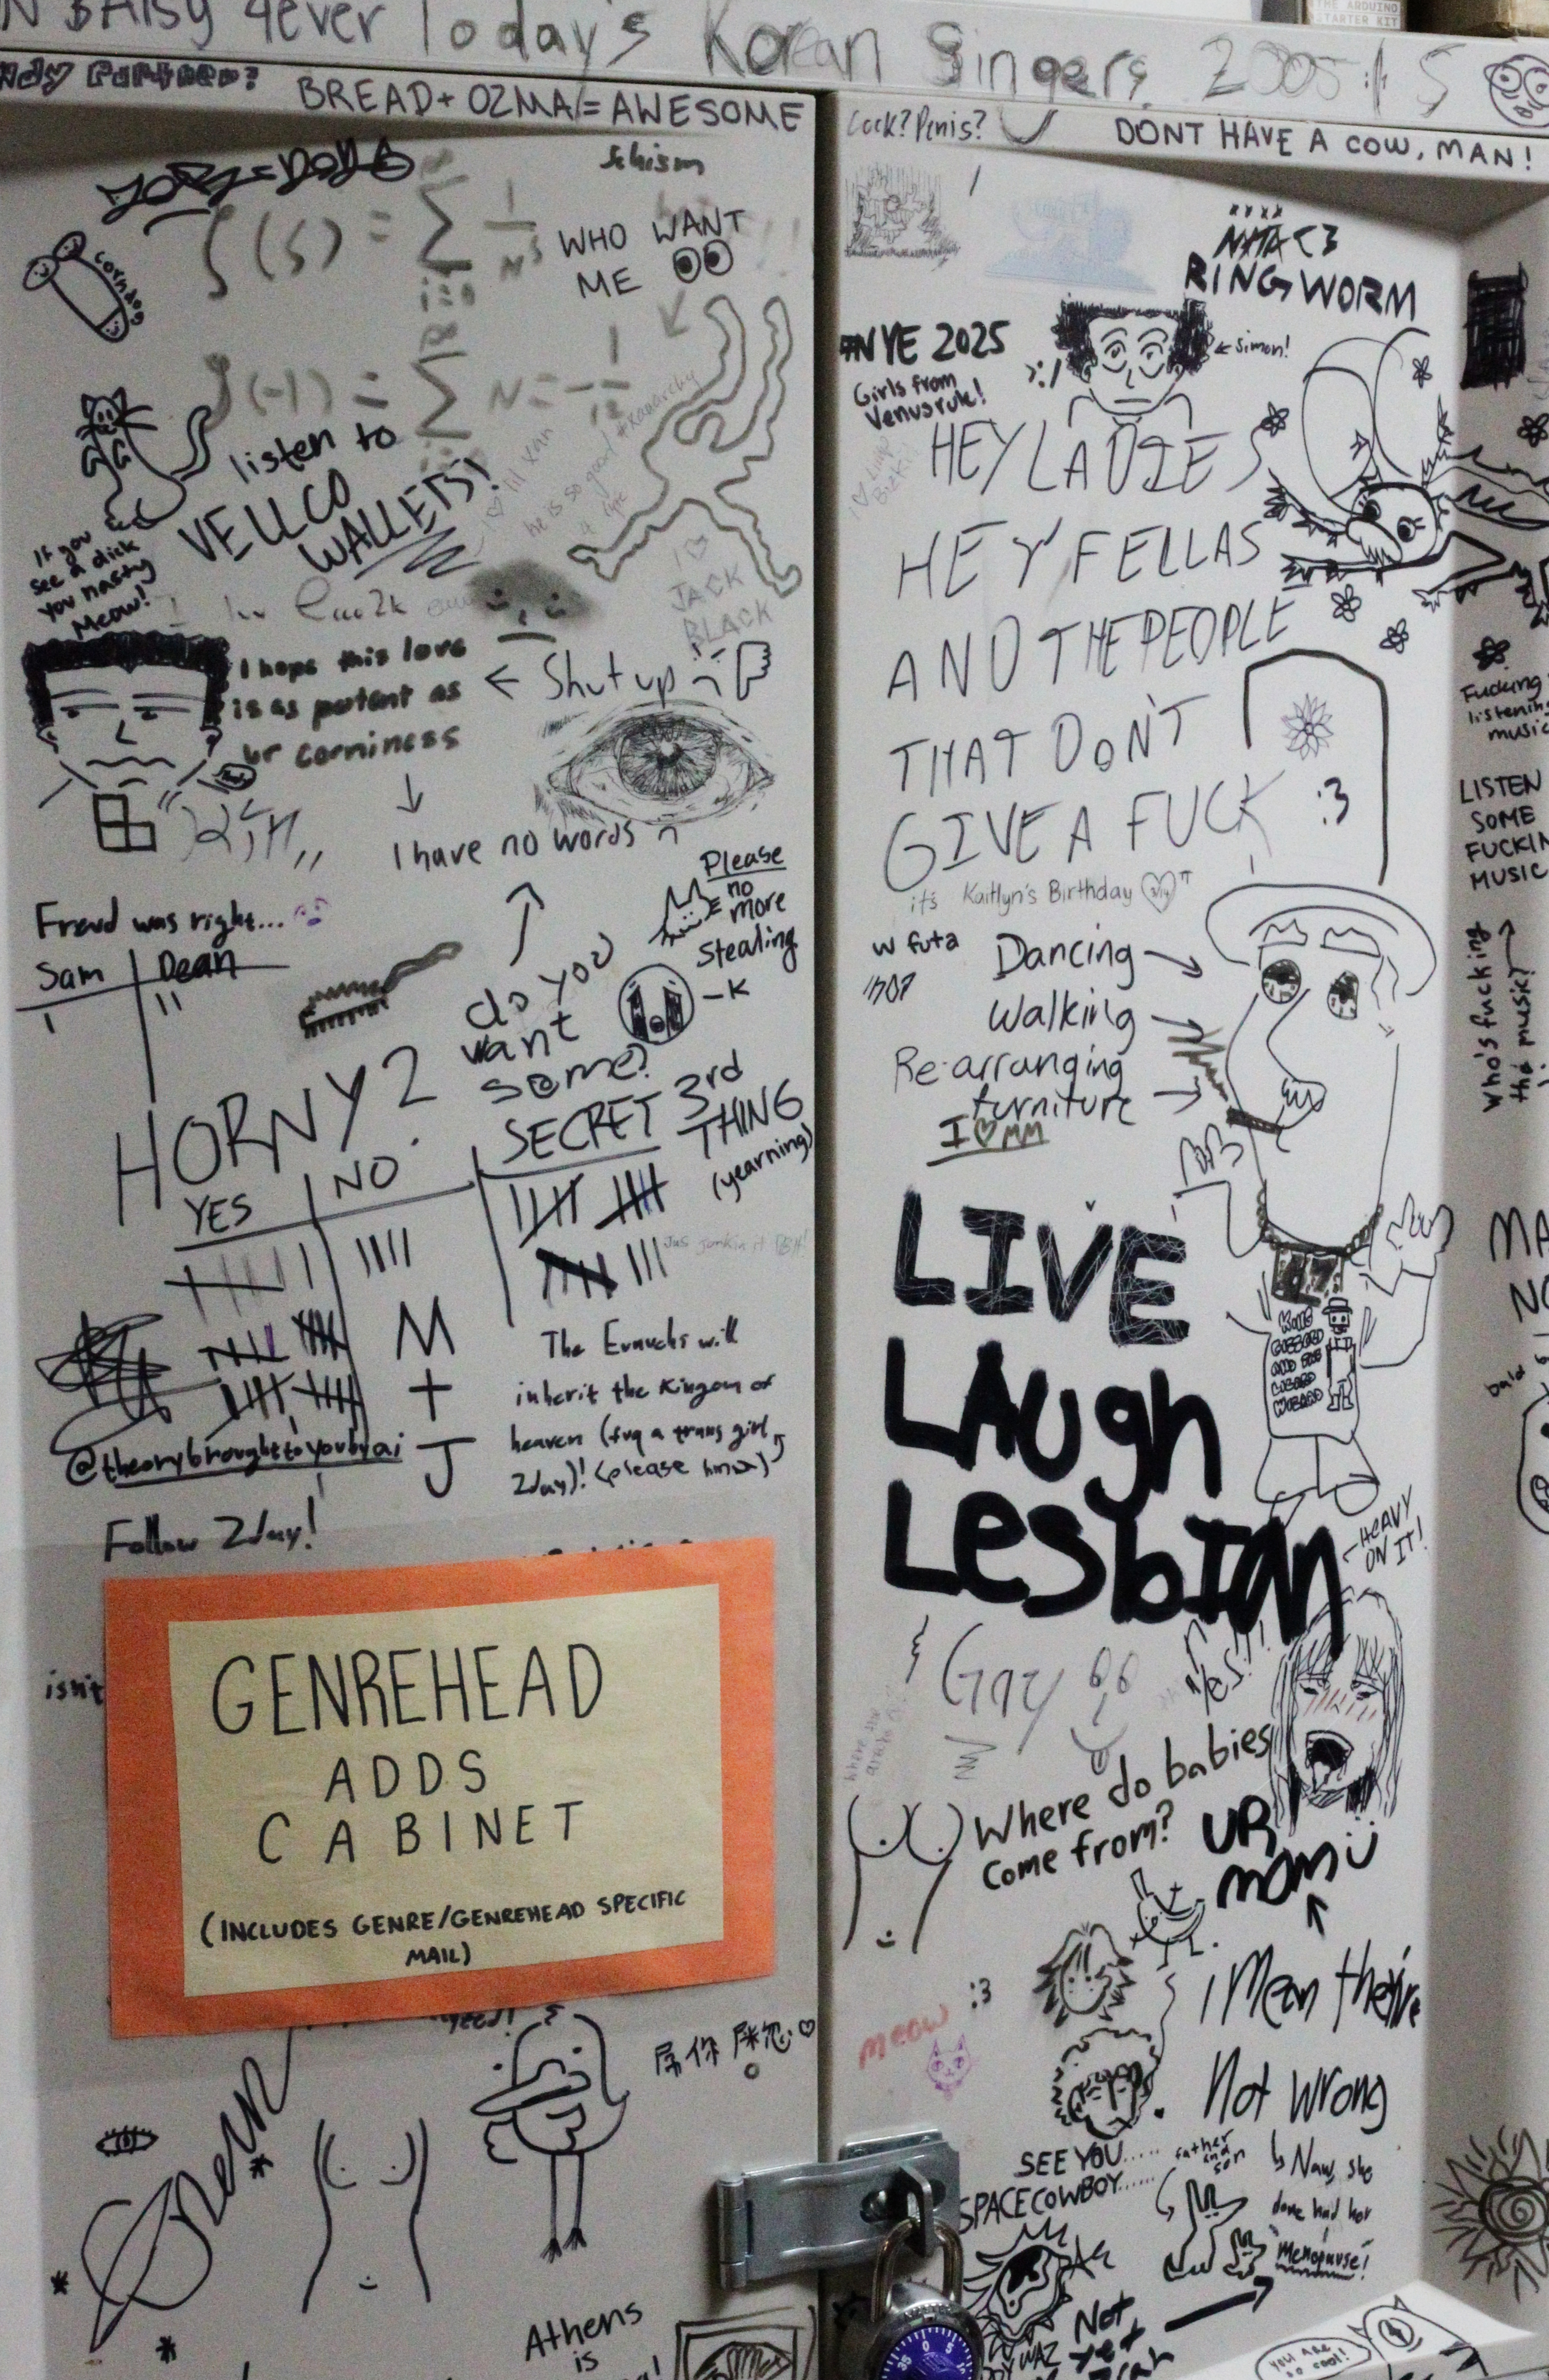 4ever Today's Korean Singers, 2005
THE ARDUINO
STARTER KIT
BREAD + OZMA = AWESOME
Cock? Penis?
DONT HAVE A COW, MAN!
Schism
WHO WANT
ME
corndog
listen to
VELLCO
WALLETS!
If you
see a dick
you nasty
Meow!
I ♡
JACK
BLACK
I hope this love
is as potent as
ur corniness
← Shut up
I have no words
Freud was right...
Sam Dean
Please
no
more
Stealing
-K
do you
want
some?
HORNY?
YES NO
SECRET 3rd
THING
(yearning)
M
+
J
The Eunuchs will
inherit the Kingom of
heaven (fuq a trans girl
2day)! (please hmu)
@theorybroughttoyoubyai
Follow 2day!
isn't
GENREHEAD
ADDS
CABINET
(INCLUDES GENRE/GENREHEAD SPECIFIC
MAIL)
Athens
is
<3
RINGWORM
#NYE 2025
← simon!
Girls from
Venus rule!
HEY LADIES
HEY FELLAS
AND THE PEOPLE
THAT DON'T
GIVE A FUCK :3
it's Kaitlyn's Birthday
w futa
Dancing
Walking
Re-arranging
furniture
I ♡ MM
KING
GIZZARD
AND THE
LIZARD
WIZARD
LIVE
LAugh
LesbIAn
HEAVY
ON IT!
Gay
Yes!!!
Where do babies
come from?
UR
mom
I Mean they're
Not wrong
:3
meow
SEE YOU.....
SPACE COWBOY......
father
and
son
↳ Naw, she
done had her
menopause!
Not
yet
YOU ARE
SO COOL!
Fucking
listening
music
LISTEN
SOME
FUCKIN
MUSIC
Who's fucking
the music?
MA
NO
bald
0 5
35